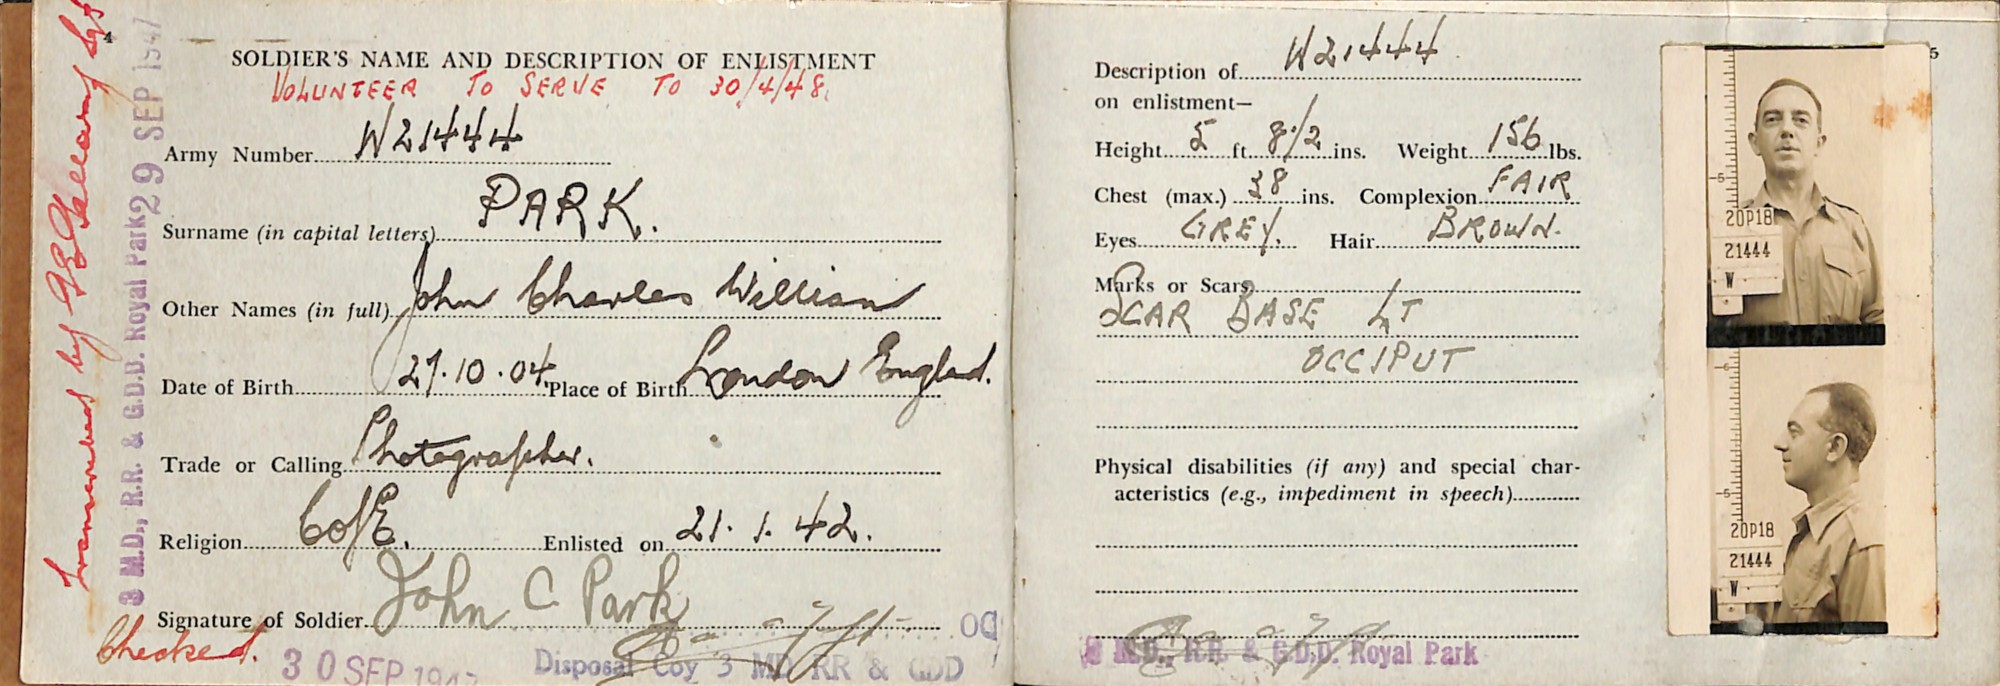 4
SOLDIER'S NAME AND DESCRIPTION OF ENLISTMENT
VOLUNTEER TO SERVE TO 30/4/48.
Army Number W21444
Surname (in capital letters) PARK.
Other Names (in full) John Charles William
Date of Birth 27.10.04. Place of Birth London England.
Trade or Calling Photographer.
Religion C of E. Enlisted on 21. 1. 42.
Signature of Soldier John C Park
Checked.
30 SEP 194
Disposal Coy 3 MD RR & GDD
OC
by
3 M.D., R.R. & G.D.D. Royal Park
29 SEP 1947
5
Description of W21444
on enlistment—
Height 5 ft. 8 1/2 ins. Weight 156 lbs.
Chest (max.) 38 ins. Complexion FAIR
Eyes GREY. Hair BROWN.
Marks or Scars
SCAR BASE LT
OCCIPUT
Physical disabilities (if any) and special char-
acteristics (e.g., impediment in speech)
M.D., R.R. & G.D.D. Royal Park
5
20P18
21444
W
6
5
20P18
21444
W